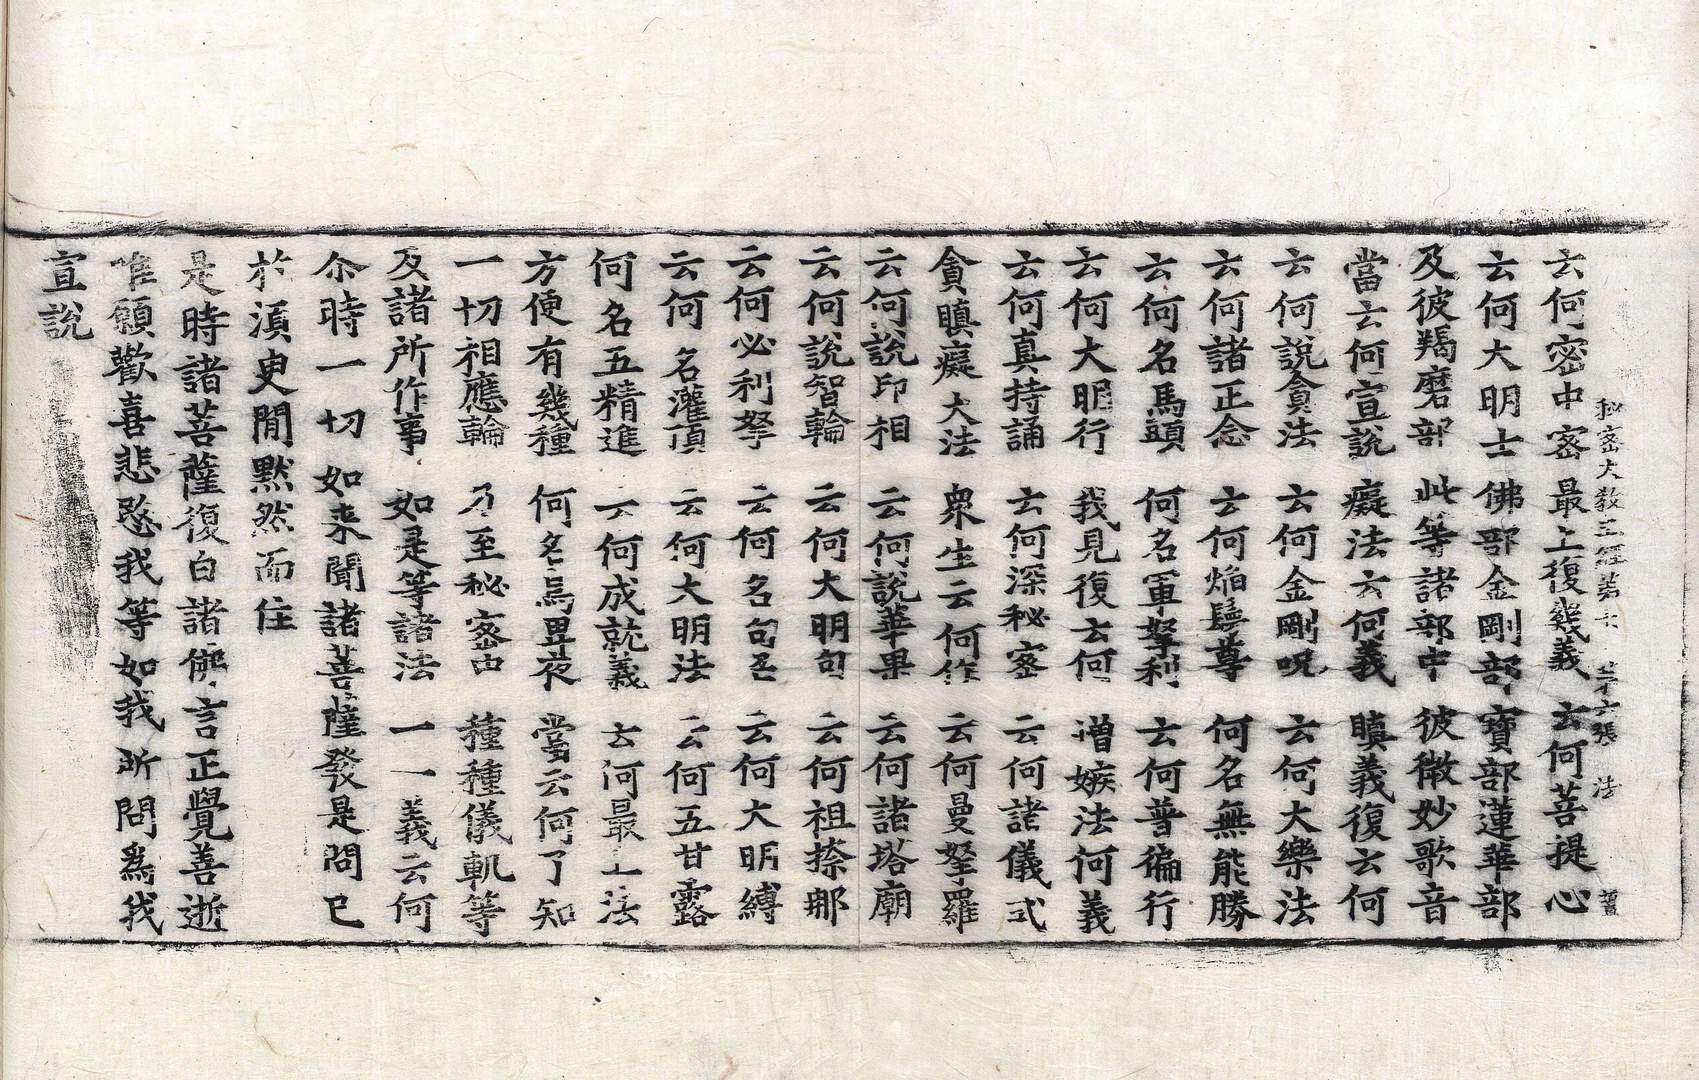 秘密大教王經第七　第十六張　法
云何密中密　最上復幾義　云何菩提心
云何大明士　佛部金剛部　寶部蓮華部
及彼羯磨部　此等諸部中　彼微妙歌音
當云何宣說　癡法云何義　瞋義復云何
云何說貪法　云何金剛呪　云何大樂法
云何諸正念　云何焰鬘尊　何名無能勝
云何名馬頭　何名軍拏利　云何普徧行
云何大明行　我見復云何　增嫉法何義
云何真持誦　云何深秘密　云何諸儀式
貪瞋癡大法　衆生云何作　云何曼拏羅
云何說印相　云何說華果　云何諸塔廟
云何說智輪　云何大明句　云何祖捺那
云何必利拏　云何名句召　云何大明縛
云何名灌頂　云何大明法　云何五甘露
何名五精進　云何成就義　云何最上法
方便有幾種　何名爲晝夜　當云何了知
一切相應輪　乃至秘密中　種種儀軌等
及諸所作事　如是等諸法　一一義云何
尒時一切如来聞諸菩薩發是問已
於湏臾閒默然而住
是時諸菩薩復白諸佛言正覺善逝
唯願歡喜悲愍我等如我所問爲我
宣說